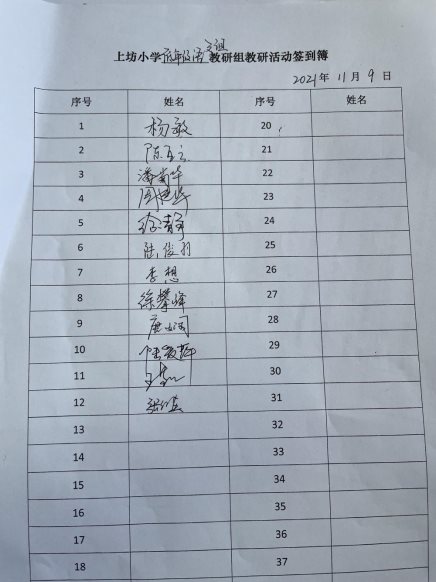 上坊小学低年级语文组教研组教研活动签到簿
2021年 11月 9日
序号 姓名 序号 姓名
1 杨敏 20
2 21
3 潘菊华 22
4 23
5 徐静 24
6 陆俊羽 25
7 李想 26
8 徐攀峰 27
9 28
10 29
11 30
12 31
13 32
14 33
15 34
16 35
17 36
18 37